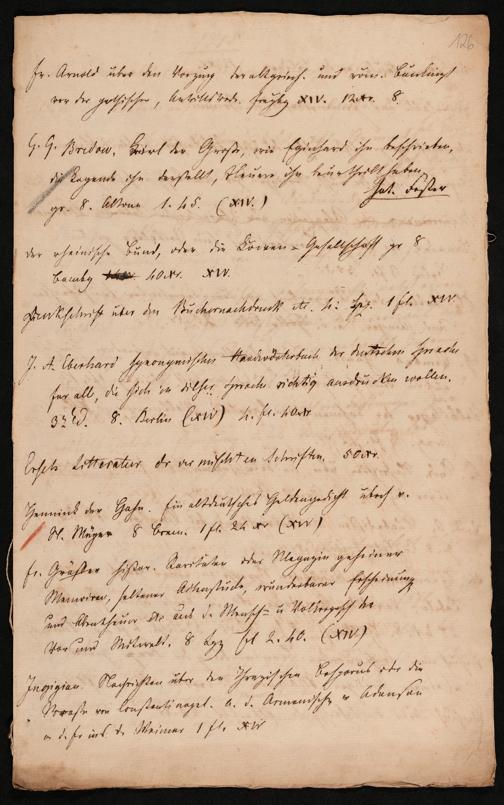 126
Fr. Arnold über den Vorzug der altgriech. und röm. Baukunst
vor der gothischen, XIV. 12 xr. 8.
G. G. Bredow, Karl der Große, wie Eginhard ihn beschrieben,
die Legende ihn darstellt, Neuere ihn beurtheilt haben.
gr. 8. Altona 1. 45. (XIV.)
der rheinische Bund, oder die Gesellschaft gr 8
bamby 40 xr. XIV.
Denkschrift über den Büchernachdruck 4. Lpz. 1 fl. XIV
J. A. Eberhard synonymisches Handwörterbuch der deutschen Sprache
für all, die sich in dieser Sprache richtig ausdrücken wollen.
8. Berlin (XIV) 4. fl. 40 xr
Ersch Litteratur der vermischten Schriften. 50 xr.
Ein altdeutsches Heldengedicht übers. v.
8 Brem. 1 fl. 24 xr (XIV)
Fr. Gräffer histor. Raritäten oder Magazin geheimer
Memoiren, seltener Aktenstücke, wunderbarer Erscheinung
und Abentheuer aus d. Menschen u Völkergesch. der
Vor und Mitwelt. 8 Lpz fl 2. 40. (XIV)
Ingigian. Nachrichten über den Thrazischen Bosporus oder die
Straße von Constantinopel. a. d. Armenischen v
Weimar 1 fl. XIV